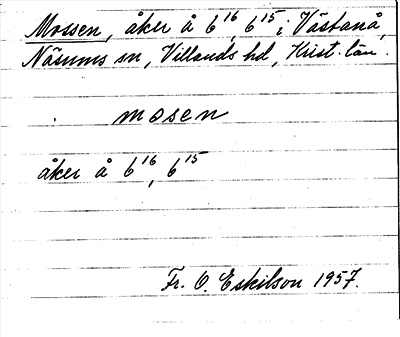 Mossen, åker å 6¹⁶, 6¹⁵ i Västanå,
Näsums sn, Villands hd, Krist. län.
mosen
åker å 6¹⁶, 6¹⁵
Fr. O. Eskilson 1957.